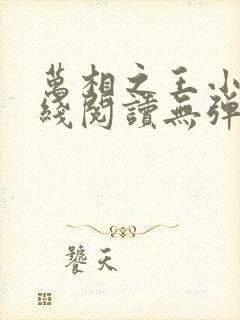 萬相之王小
綫閱讀無彈
饕天